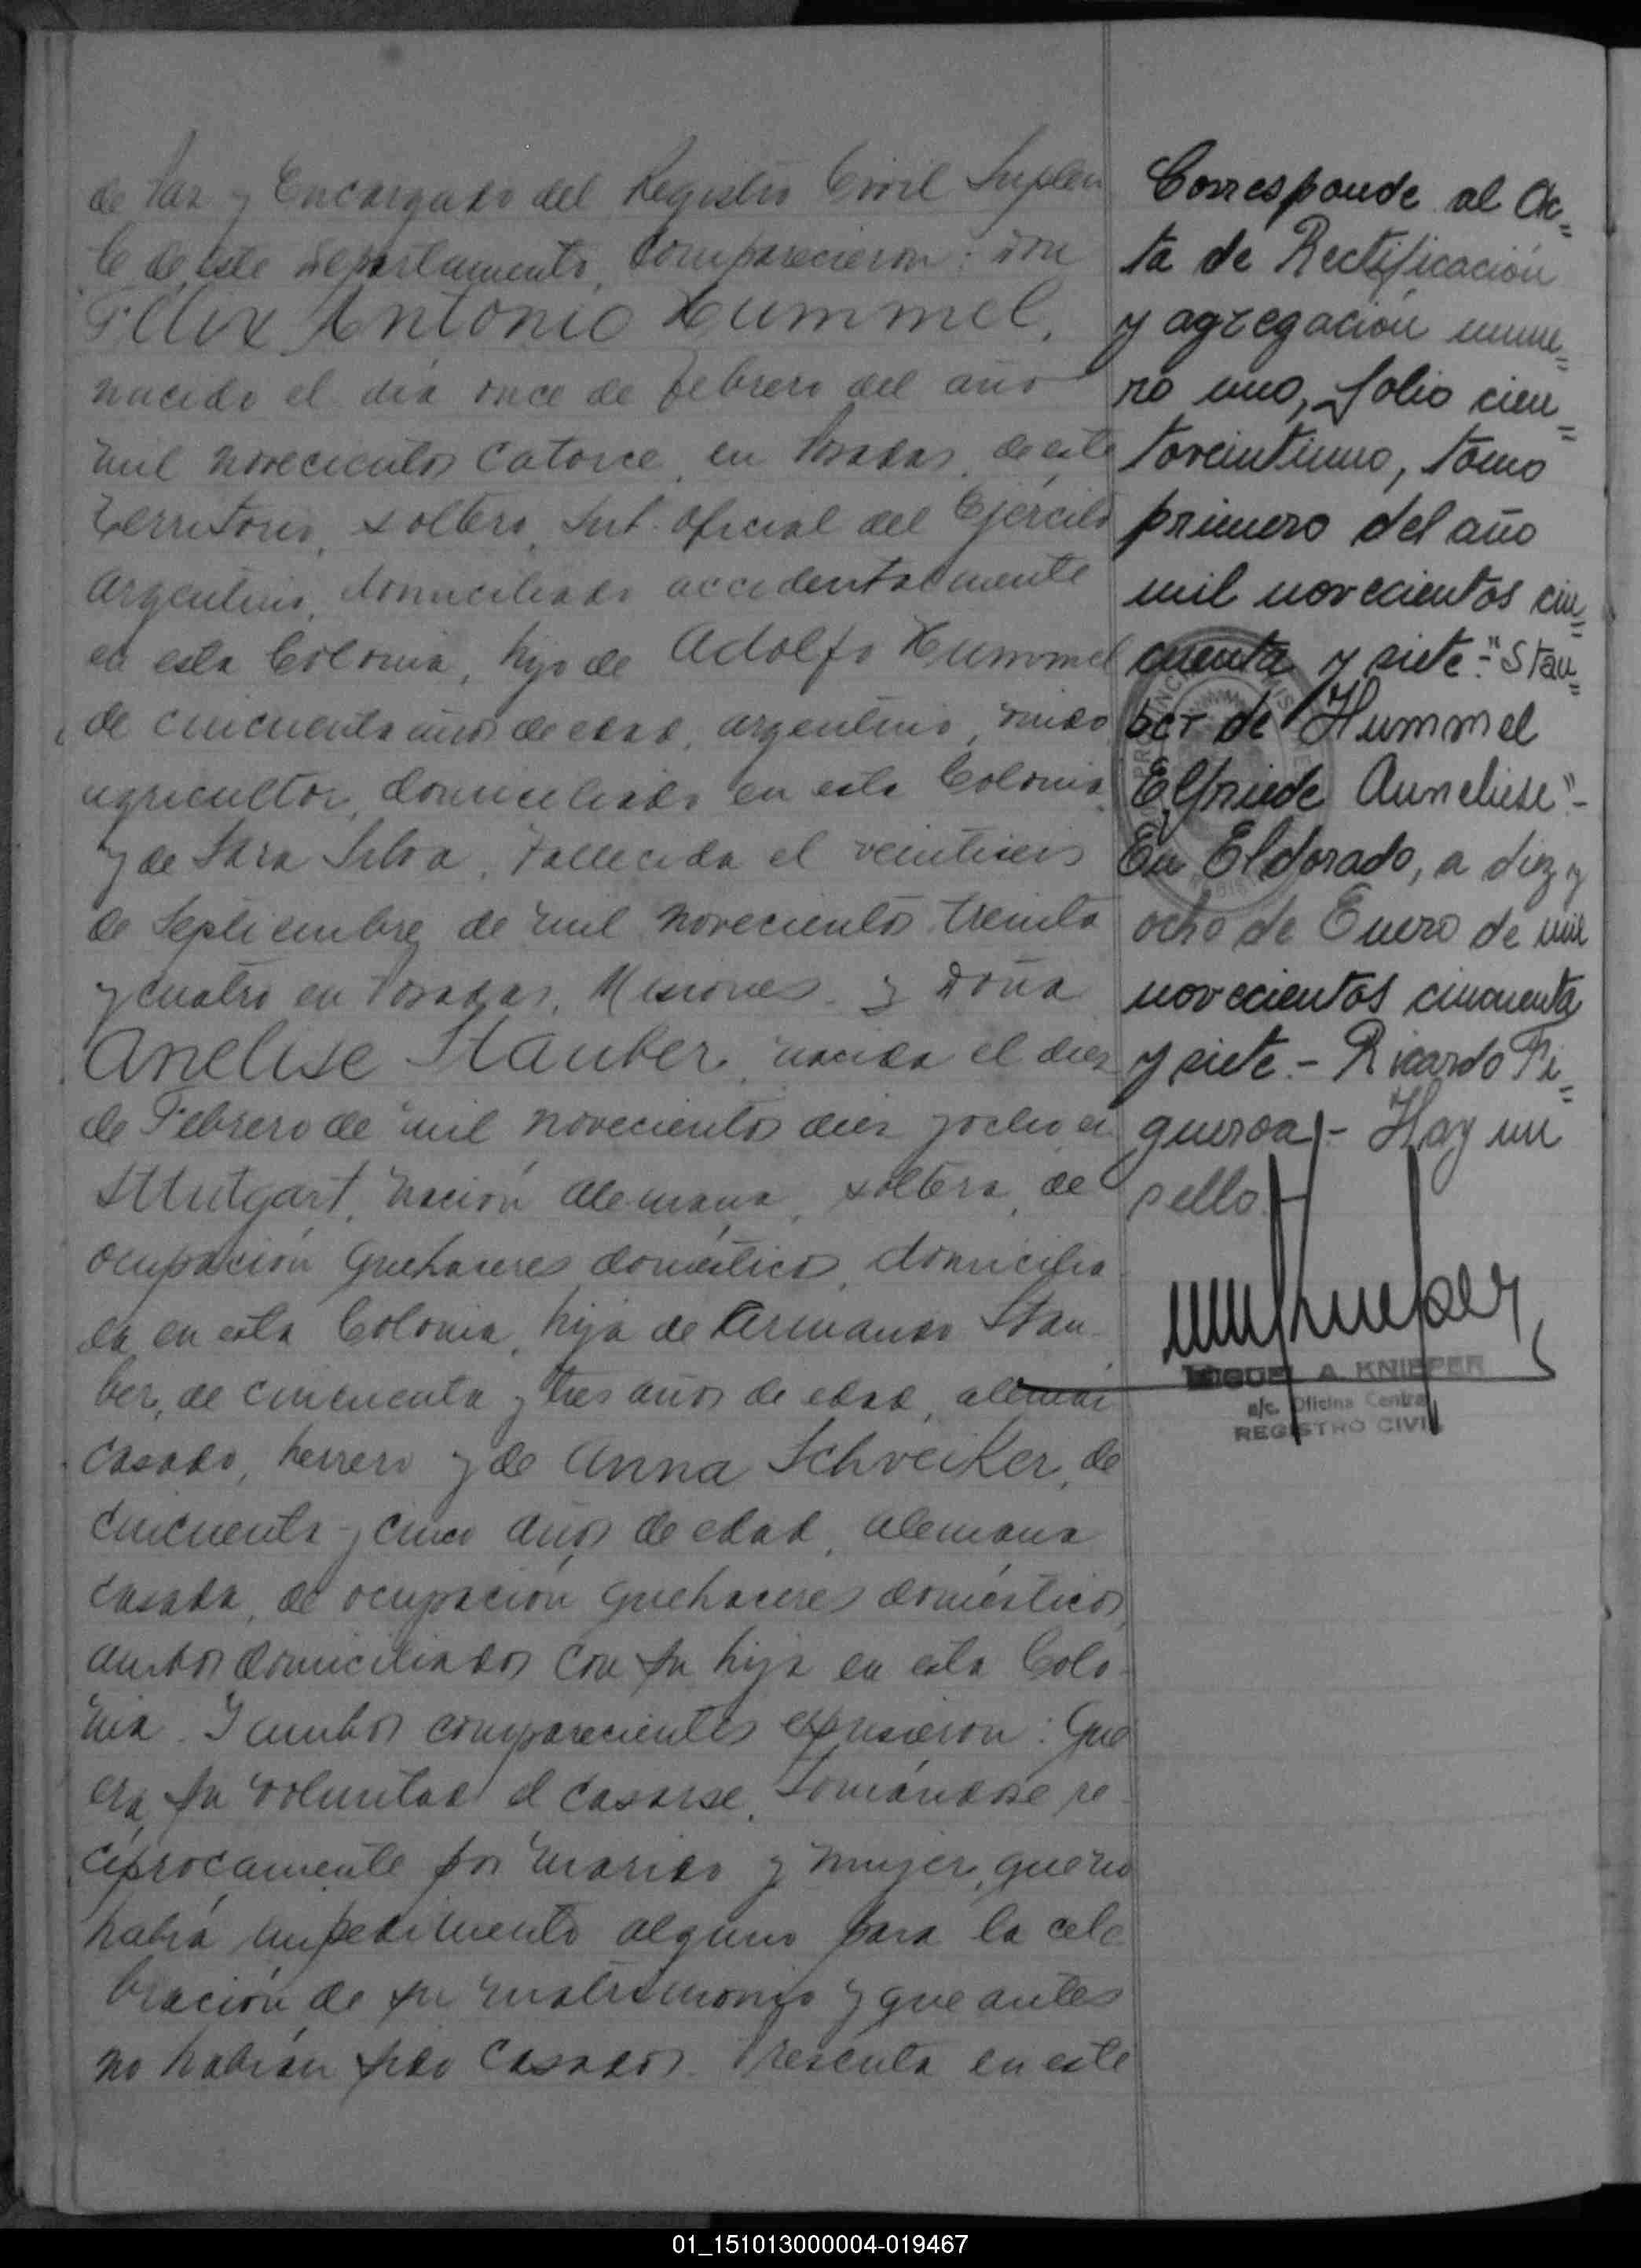 de Paz y Encargado del Registro Civil Suplen
te de este Departamento, comparecieron: don
Felix Antonio Hummel,
nacido el día once de Febrero del año
mil novecientos catorce, en Posadas, de este
Territorio, soltero, Sub. Oficial del Ejército
Argentino, domiciliado accidentalmente
en esta Colonia, hijo de Adolfo Hummel
de cincuenta años de edad, argentino, viudo
agricultor, domiciliado en esta Colonia
y de Sara Silva, fallecida el veintiseis
de Septiembre de mil novecientos treinta
y cuatro en Posadas, Misiones y Doña
Anelise Stauber, nacida el diez
de Febrero de mil novecientos diez y ocho en
Sttutgart, nación alemana, soltera, de
ocupación quehaceres domésticos, domicilia
da en esta Colonia, hija de Armando Stau-
ber, de cincuenta y tres años de edad, alemán
casado, herrero y de Anna Schveiker, de
cincuenta y cinco años de edad, alemana
casada, de ocupación quehaceres domésticos
ambos domiciliados con su hija en esta Colo-
nia. Y ambos comparecientes expusieron: Que
era su voluntad el casarse, tomándose re-
ciprocamente por marido y mujer, que no
había impedimento alguno para la cele
bración de su matrimonio y que antes
no habían sido casados. Presenta en este
Corresponde al Ac=
ta de Rectificación
y agregación nume=
ro uno, folio cien=
toveintiuno, tomo
primero del año
mil novecientos cin=
cuenta y siete.- "Stau=
ber de Hummel
Elfriede Anneliese"-
En Eldorado, a diez y
ocho de Enero de mil
novecientos cincuenta
y siete.- Ricardo Fi=
gueroa.- Hay un
sello.-
MIGUEL A. KNIEPPER
a/c. Oficina Central
REGISTRO CIVIL
01_151013000004-019467